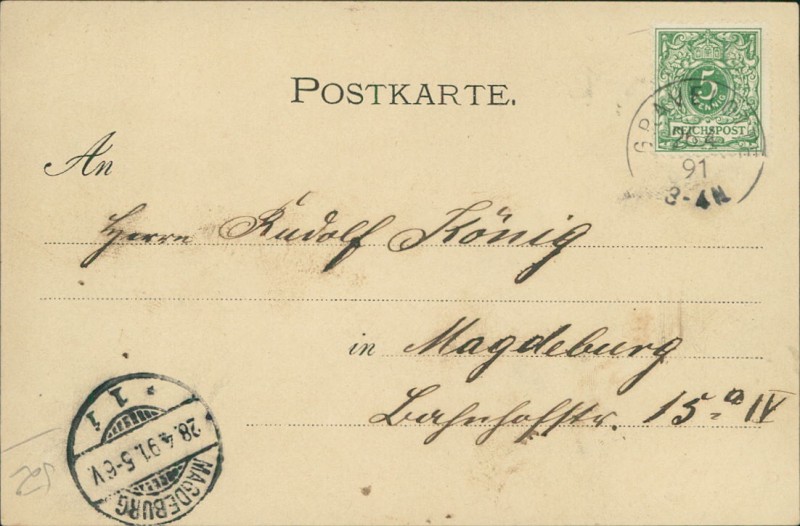 POSTKARTE.
5
PFENNIG
REICHSPOST
GRAVE
26 4
91
3-4N
An
Herrn Rudolf König
in Magdeburg
Bahnhofstr. 15 a IV
* 1 1
28.4.91.5-6V.
MAGDEBURG